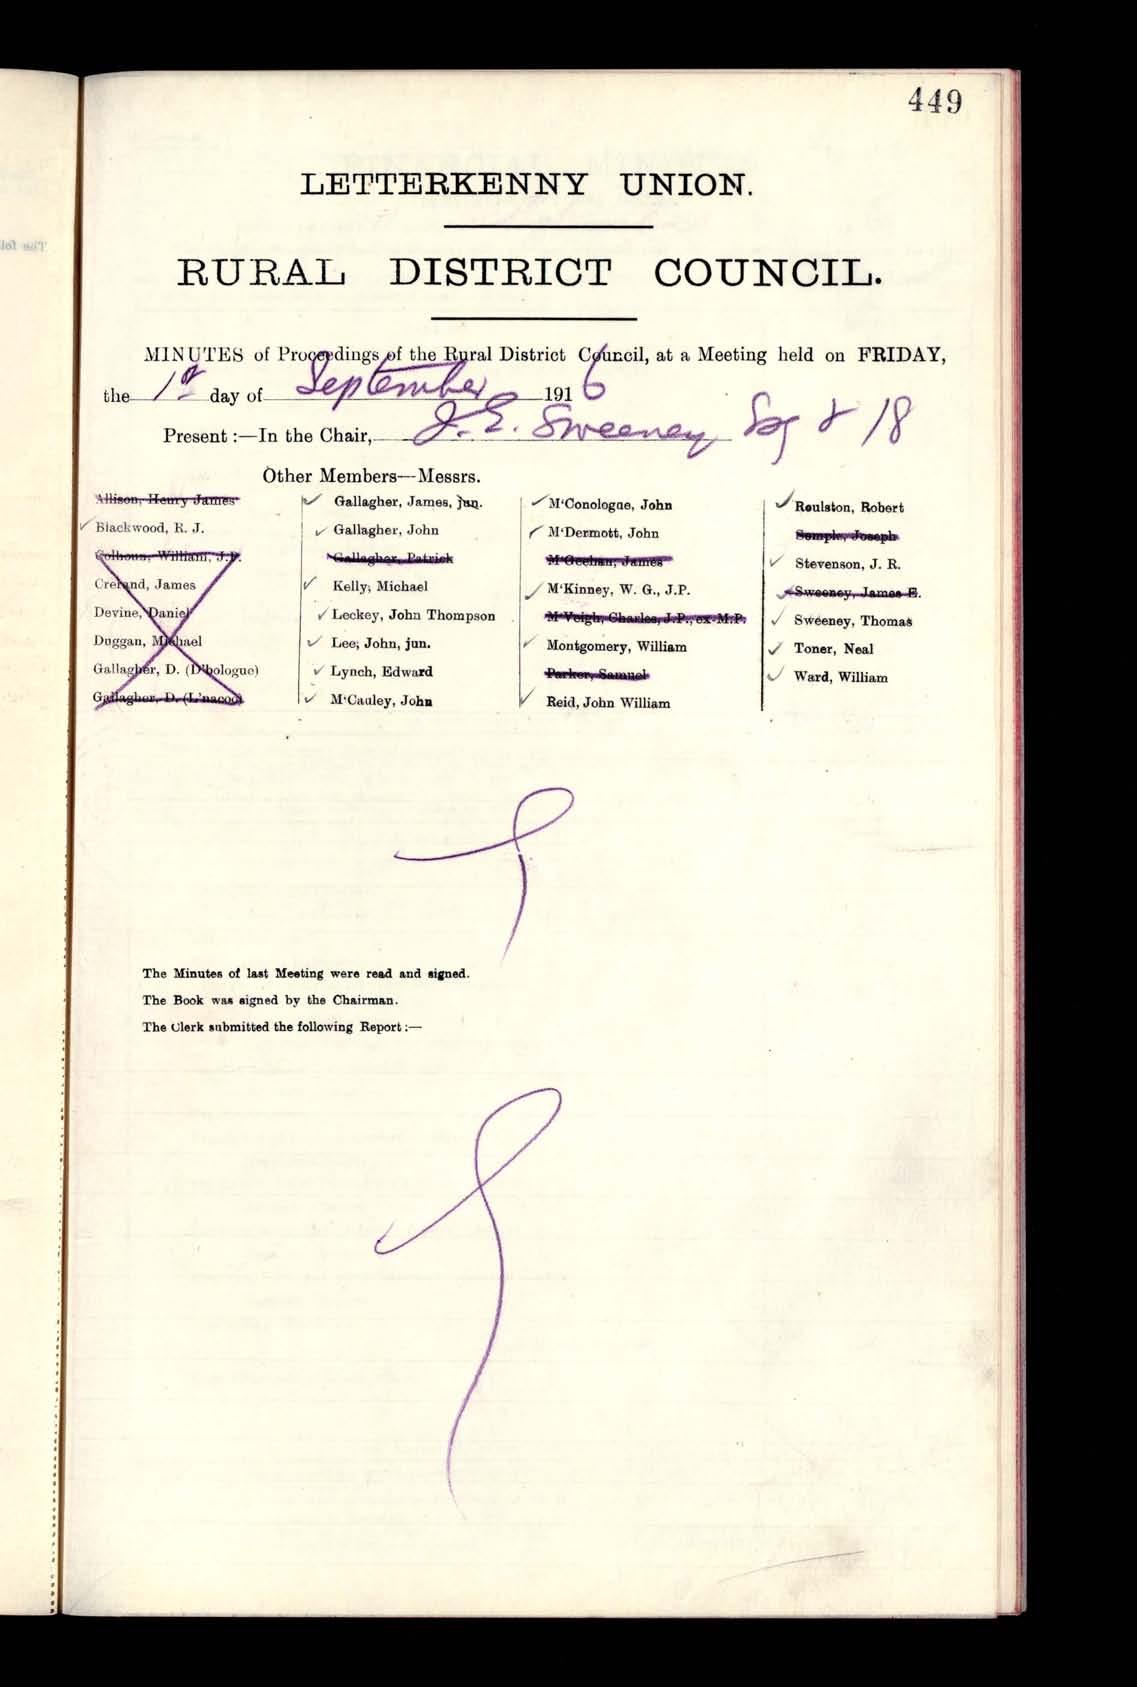 449
LETTERKENNY UNION.
RURAL DISTRICT COUNCIL.
MINUTES of Proceedings of the Rural District Council, at a Meeting held on FRIDAY,
the 1st day of September 1916
Present :—In the Chair, J. E. Sweeney Esq & 18
Other Members—Messrs.
Allison, Henry James
Blackwood, R. J.
Colhoun, William, J.P.
Crerand, James
Devine, Daniel
Duggan, Michael
Gallagher, D. (D'bologue)
Gallagher, D. (L'nacoo)
Gallagher, James, jun.
Gallagher, John
Gallagher, Patrick
Kelly, Michael
Leckey, John Thompson
Lee, John, jun.
Lynch, Edward
M'Cauley, John
M'Conologue, John
M'Dermott, John
M'Geehan, James
M'Kinney, W. G., J.P.
M'Veigh, Charles, J.P., ex-M.P.
Montgomery, William
Parker, Samuel
Reid, John William
Roulston, Robert
Semple, Joseph
Stevenson, J. R.
Sweeney, James E.
Sweeney, Thomas
Toner, Neal
Ward, William
The Minutes of last Meeting were read and signed.
The Book was signed by the Chairman.
The Clerk submitted the following Report :—